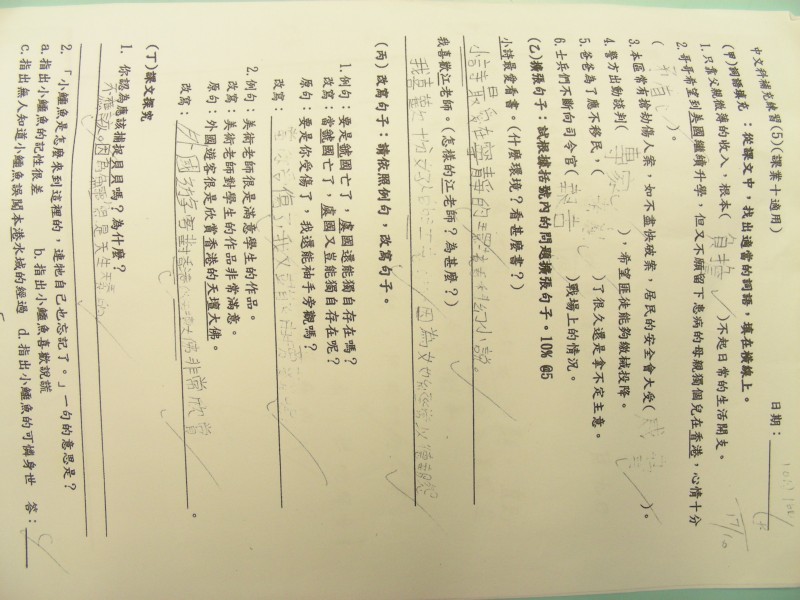 中文科補充練習(5)(課業十適用)
日期：
(甲)詞語填充：從課文中，找出適當的詞語，填在橫線上。
1.只靠父親微薄的收入，根本( 負擔 )不起日常的生活開支。
2.哥哥希望到美國繼續升學，但又不願留下患病的母親獨個兒在香港，心情十分
( )。
3.本區常有搶劫傷人案，如不盡快破案，居民的安全會大受( )。
4.警方出動談判( 專家 )，希望匪徒能夠繳械投降。
5.爸爸為了應不移民，( )了很久還是拿不定主意。
6.士兵們不斷向司令官( 報告 )戰場上的情況。
(乙)擴張句子：試根據括號內的問題擴張句子。10% @5
小詩最愛看書。(什麼環境？看甚麼書？)
小詩最愛在寧靜的環境看科幻小說。
我喜歡江老師。(怎樣的江老師？為甚麼？)
(丙) 改寫句子：請依照例句，改寫句子。
1.例句：要是虢國亡了，虞國還能獨自存在嗎？
改寫：當虢國亡了，虞國又豈能獨自存在呢？
原句：要是你受傷了，我還能袖手旁觀嗎？
改寫：
2.例句：美術老師很是滿意學生的作品。
改寫：美術老師對學生的作品非常滿意。
原句：外國遊客很是欣賞香港的天壇大佛。
改寫：外國遊客對香港的天壇大佛非常欣賞。
(丁)課文探究
1. 你認為應該捕捉貝貝嗎？為什麼？
2. 「小鱷魚是怎麼來到這裡的，連牠自己也忘記了。」一句的意思是？
a. 指出小鱷魚的記性很差 b. 指出小鱷魚喜歡說謊
c. 指出無人知道小鱷魚誤闖本港水域的經過 d. 指出小鱷魚的可憐身世 答：C